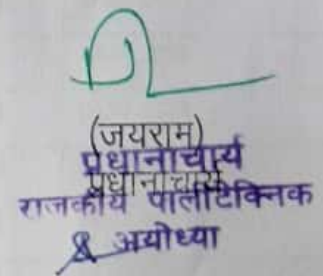 (जयराम)
प्रधानाचार्य
प्रधानाचार्य
राजकीय पालीटेक्निक
अयोध्या